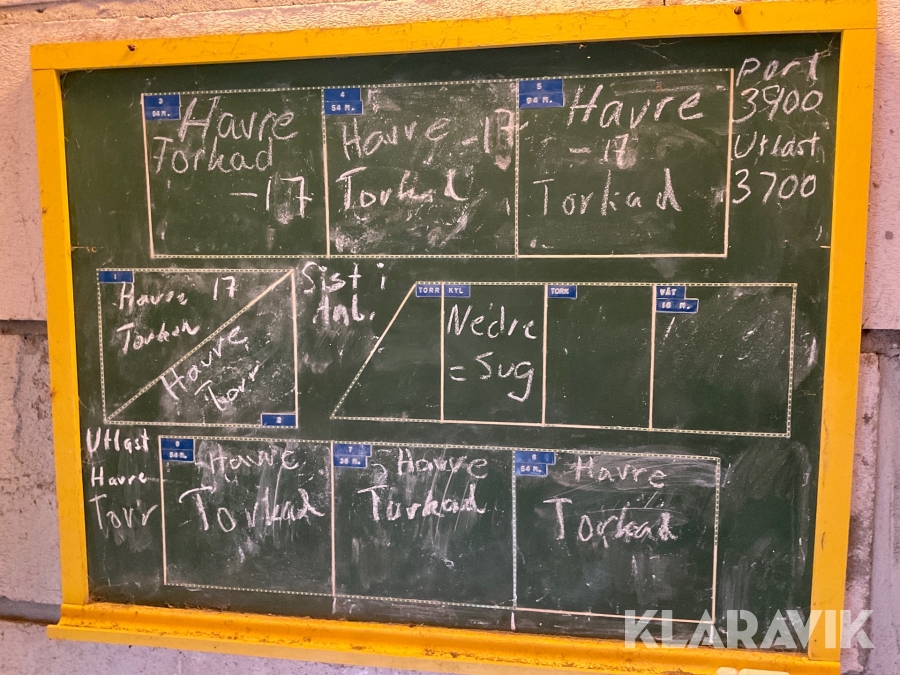 3
94 M.
Havre
Torkad
-17
4
54 M.
Havre -17
Torkad
5
94 M.
Havre
-17
Torkad
Port
3900
Utlast
3700
1
Havre 17
Havre
Torr
2
Sist i
Anl.
TORR
KYL
Nedre
= Sug
TORK
VÅT
16 M.
Utlast
Havre
Torr
54 M.
Havre
Torkad
7
Havre
Torkad
54 M.
Havre
Torkad
KLARAVIK